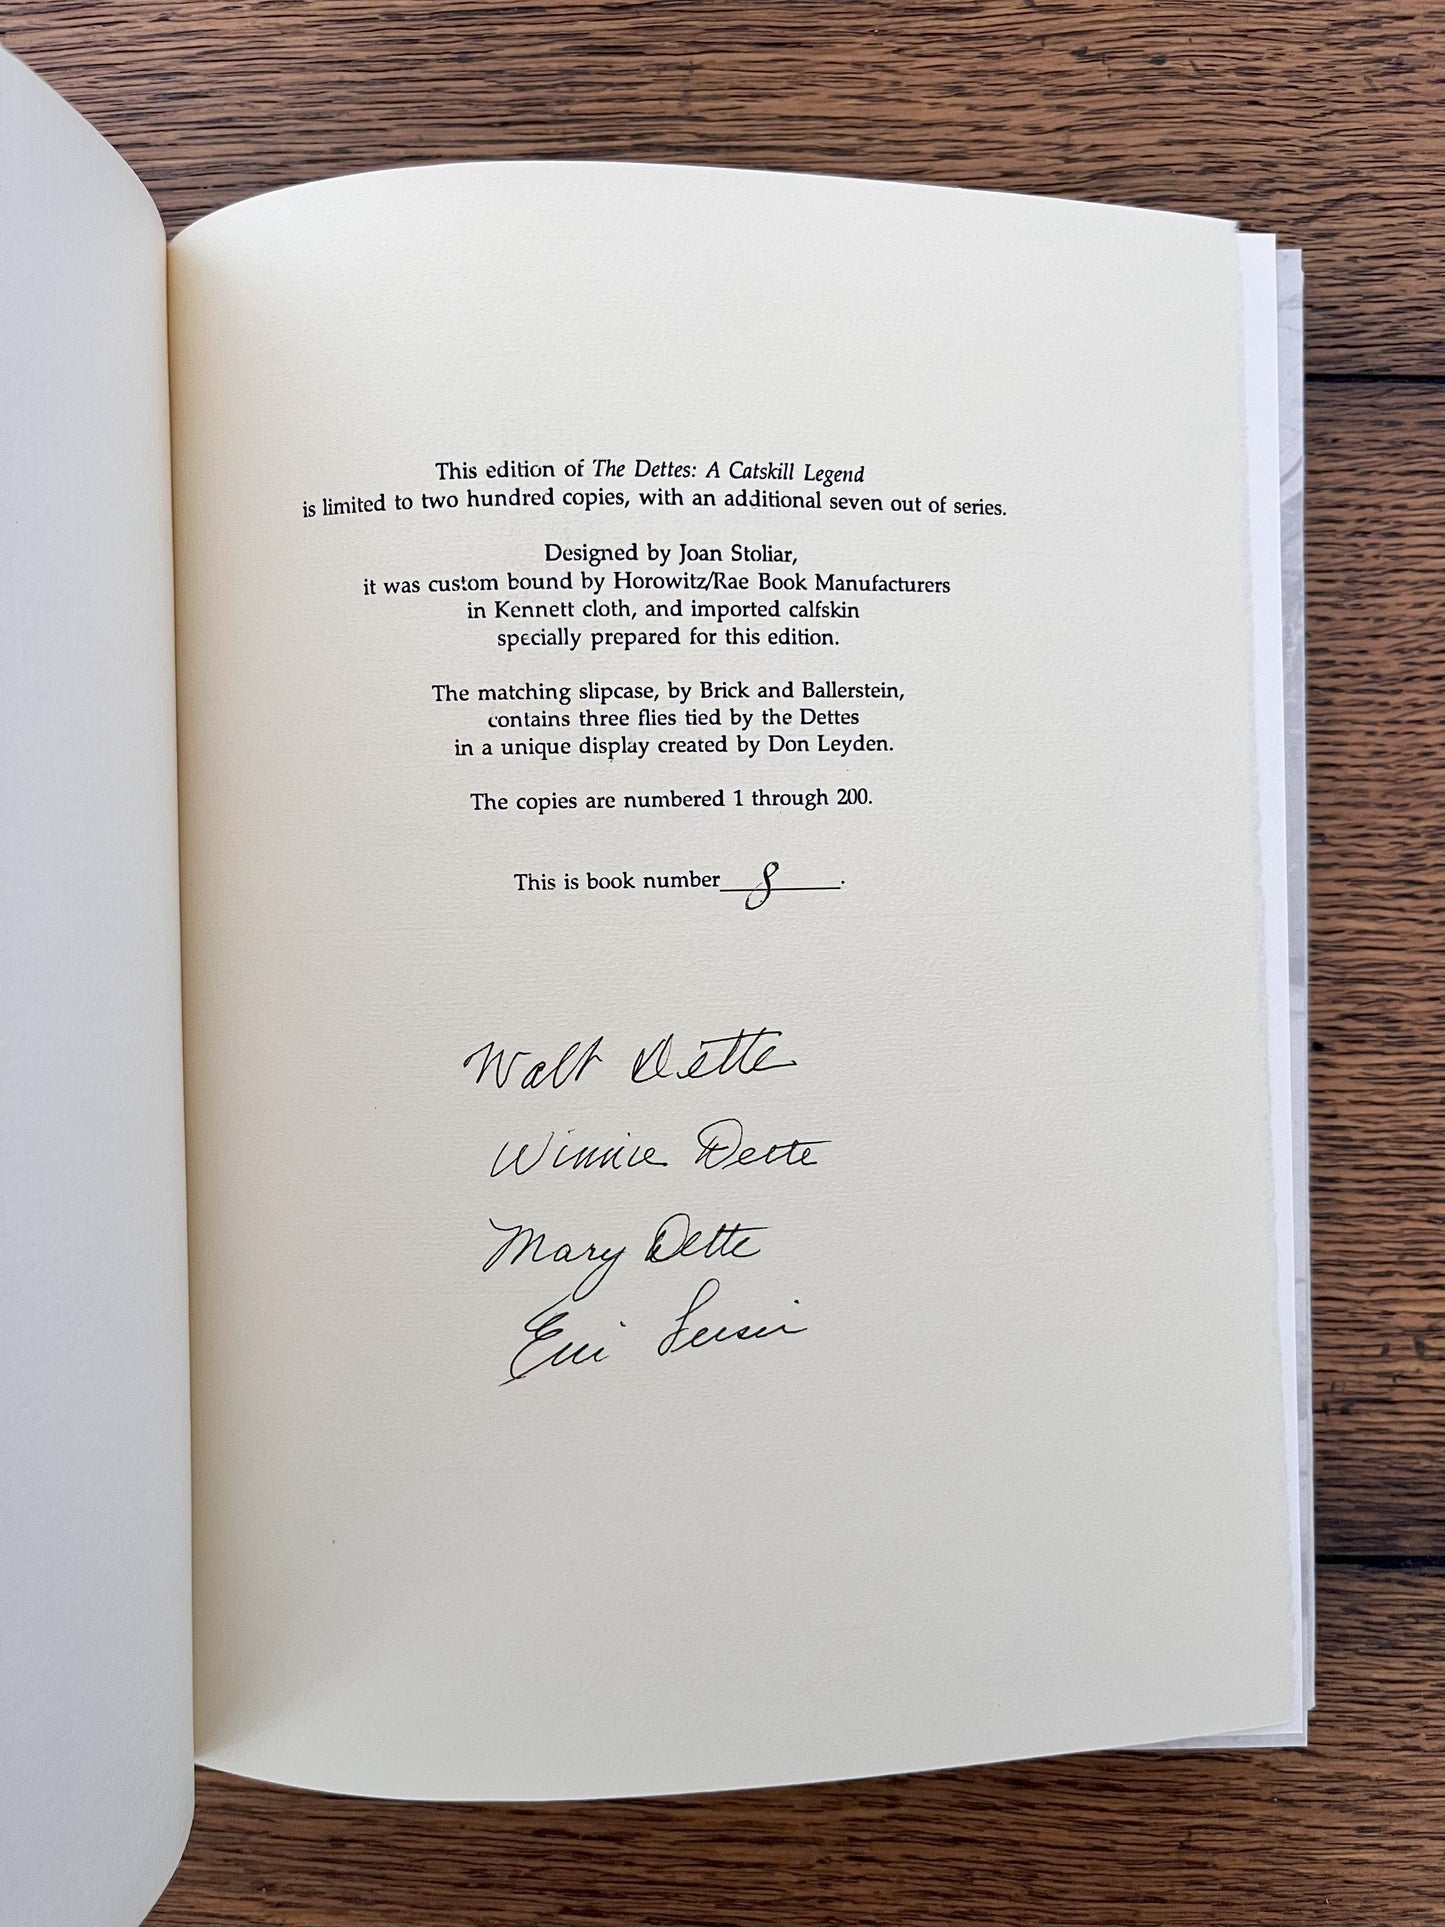 This edition of The Dettes: A Catskill Legend
is limited to two hundred copies, with an additional seven out of series.
Designed by Joan Stoliar,
it was custom bound by Horowitz/Rae Book Manufacturers
in Kennett cloth, and imported calfskin
specially prepared for this edition.
The matching slipcase, by Brick and Ballerstein,
contains three flies tied by the Dettes
in a unique display created by Don Leyden.
The copies are numbered 1 through 200.
This is book number 8.
Walt Dette
Winnie Dette
Mary Dette
Eric Leiser